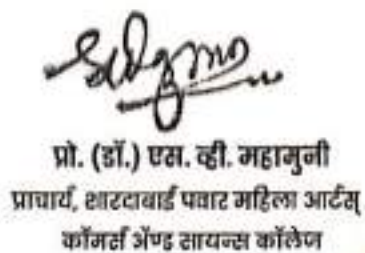 प्रो. (डॉ.) एस. व्ही. महामुनी
प्राचार्य, शारदाबाई पवार महिला आर्टस्
कॉमर्स अ‍ॅण्ड सायन्स कॉलेज